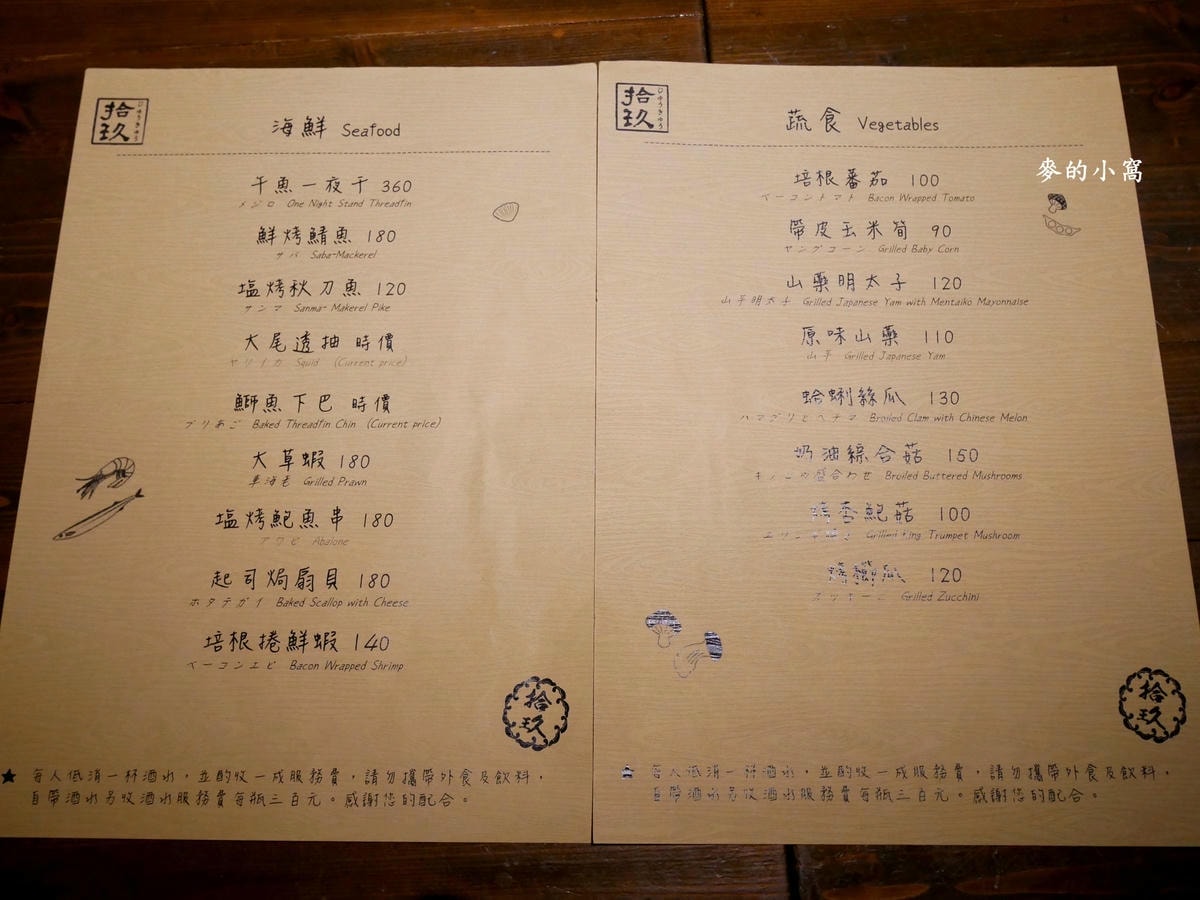 拾玖
じゅうきゅう
海鮮 Seafood
午魚一夜干 360
メジロ One Night Stand Threadfin
鮮烤鯖魚 180
サバ Saba-Mackerel
塩烤秋刀魚 120
サンマ Sanma- Makerel Pike
大尾透抽 時價
ヤリイカ Squid (Current price)
鰤魚下巴 時價
ブリあご Baked Threadfin Chin (Current price)
大草蝦 180
車海老 Grilled Prawn
塩烤鮑魚串 180
アワビ Abalone
起司焗扇貝 180
ホタテガイ Baked Scallop with Cheese
培根捲鮮蝦 140
ベーコンエビ Bacon Wrapped Shrimp
拾玖
★ 每人低消一杯酒水，並酌收一成服務費，請勿攜帶外食及飲料，
自帶酒水另收酒水服務費每瓶三百元。感謝您的配合。
拾玖
じゅうきゅう
蔬食 Vegetables
麥的小窩
培根蕃茄 100
ベーコントマト Bacon Wrapped Tomato
帶皮玉米筍 90
ヤングコーン Grilled Baby Corn
山藥明太子 120
山芋明太子 Grilled Japanese Yam with Mentaiko Mayonnaise
原味山藥 110
山芋 Grilled Japanese Yam
蛤蜊絲瓜 130
ハマグリとヘチマ Broiled Clam with Chinese Melon
奶油綜合菇 150
盛合わせ Broiled Buttered Mushrooms
杏鮑菇 100
Grilled King Trumpet Mushroom
櫛瓜 120
ズッキーニ Grilled Zucchini
拾玖
每人低消一杯酒水，並酌收一成服務費，請勿攜帶外食及飲料，
自帶酒水另收酒水服務費每瓶三百元。感謝您的配合。